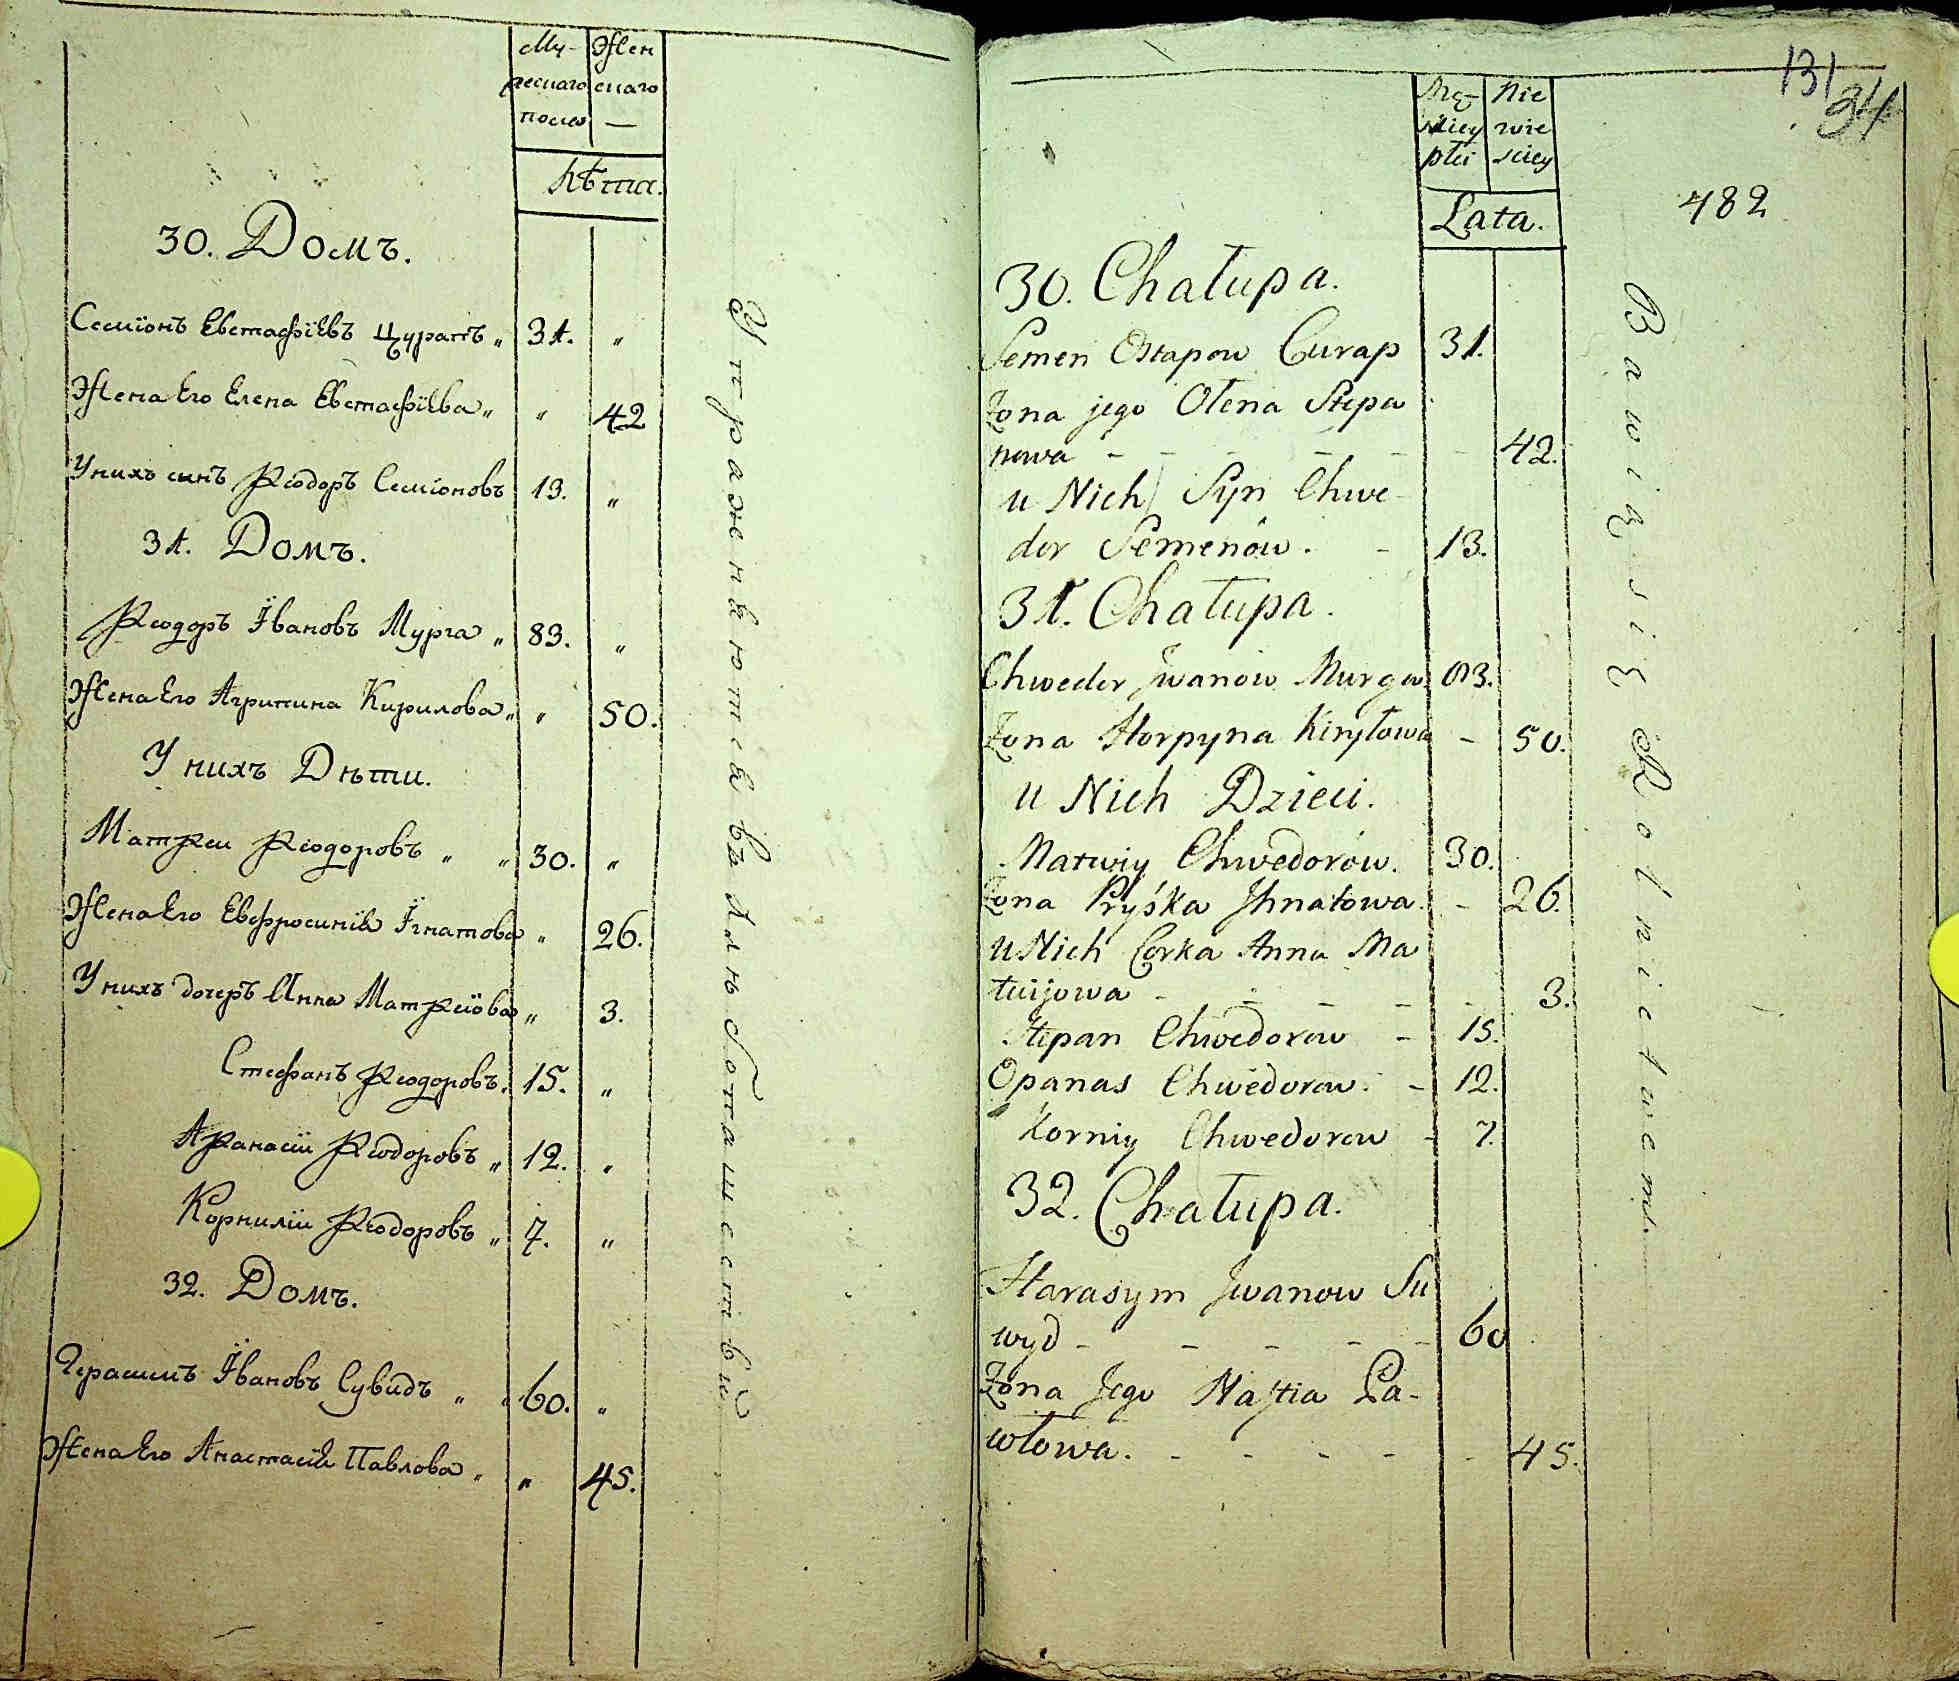 Му- Жен
жескаго скаго
полѫ —
Лѣта.
30. Домъ.
Семіонъ Евстафіевъ Цурапъ „ 31. „
Жена Его Елена Евстафіева „ „ 42
У нихъ синъ Ѳеодоръ Семіоновъ 13. „
31. Домъ.
Ѳеодоръ Івановъ Мурга „ 83. „
Жена Его Агрипина Кирилова „ „ 50.
У нихъ Дѣти.
Матѳеи Ѳеодоровъ „ „ 30. „
Жена Его Евфросинія Ігнатова „ 26.
У нихъ дочеръ Анна Матѳеіова „ 3.
Стефанъ Ѳеодоровъ. 15. „
Аѳанасіи Ѳеодоровъ „ 12. „
Корниліи Ѳеодоровъ „ 7. „
32. Домъ.
Герасимъ Івановъ Сувидъ „ „ 60. „
Жена Его Анастасія Павлова „ „ 45.
Упражняются въ хлѣбопашествѣ
131
34
482
Mę- Nie
skiey wie
płci sciey
Lata.
30. Chałupa.
Semen Ostapow Curap 31.
Żona jego Ołena Stepa
nowa - - - - - - 42.
u Nich Syn Chwe
dor Semenow. - 13.
31. Chałupa.
Chwedor Jwanow Murga 83.
Żona Horpyna Kiryłowa - 50.
u Nich Dzieci.
Matwiy Chwedorow. 30.
Żona Pryśka Jhnatowa. - 26.
u Nich Corka Anna Ma
twijowa - - - - - - 3.
Stepan Chwedorow - 15.
Opanas Chwedorow. - 12.
Korniy Chwedorow - 7.
32. Chałupa.
Harasym Jwanow Su
wyd - - - - - 60
Żona Jego Nastia Pa-
włowa. - - - - - 45.
Bawią się Rolnictwem